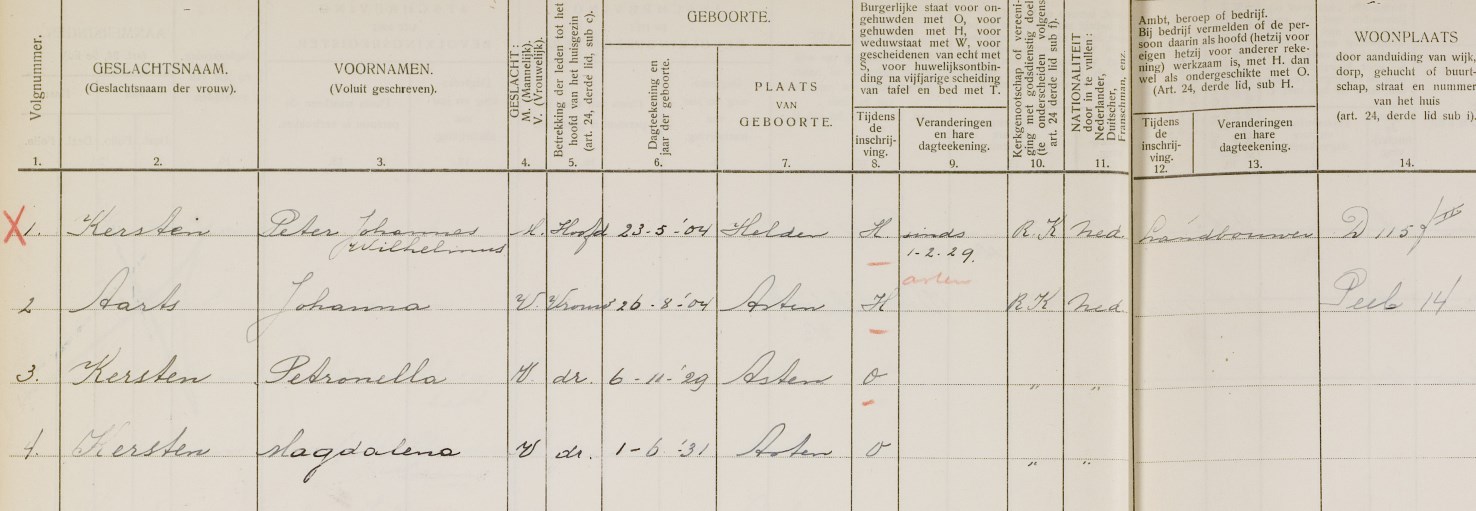 Volgnummer.
1.
GESLACHTSNAAM.
(Geslachtsnaam der vrouw).
2.
VOORNAMEN.
(Voluit geschreven).
3.
GESLACHT:
M. (Mannelijk).
V. (Vrouwelijk).
4.
Betrekking der leden tot het
hoofd van het huisgezin
(art. 24, derde lid, sub c).
5.
GEBOORTE.
Dagteekening en
jaar der geboorte.
6.
PLAATS
VAN
GEBOORTE.
7.
Burgerlijke staat voor on-
gehuwden met O, voor
gehuwden met H, voor
weduwstaat met W, voor
gescheidenen van echt met
S, voor huwelijksontbin-
ding na vijfjarige scheiding
van tafel en bed met T.
Tijdens
de
inschrij-
ving.
8.
Veranderingen
en hare
dagteekening.
9.
Kerkgenootschap of vereeni-
ging met godsdienstig doel
(te onderscheiden volgens
art. 24 derde lid sub f).
10.
NATIONALITEIT
door in te vullen:
Nederlander,
Duitscher,
Franschman, enz.
11.
Ambt, beroep of bedrijf.
Bij bedrijf vermelden of de per-
soon daarin als hoofd (hetzij voor
eigen hetzij voor anderer reke-
ning) werkzaam is, met H. dan
wel als ondergeschikte met O.
(Art. 24, derde lid, sub H.
Tijdens
de
inschrij-
ving.
12.
Veranderingen
en hare
dagteekening.
13.
WOONPLAATS
door aanduiding van wijk,
dorp, gehucht of buurt-
schap, straat en nummer
van het huis
(art. 24, derde lid sub i).
14.
X 1. Kersten Peter Johannes M. Hoofd 23-5-'04 Helden H. sinds R.K Ned. Landbouwer D 115
Wilhelmus 1-2-29.
Asten
2 Aarts Johanna V. Vrouw 26-8-'04 Asten H R.K Ned. Peel 14
3. Kersten Petronella V. dr. 6-11-'29 Asten O " "
4. Kersten Magdalena V dr. 1-6-'31 Asten O " "